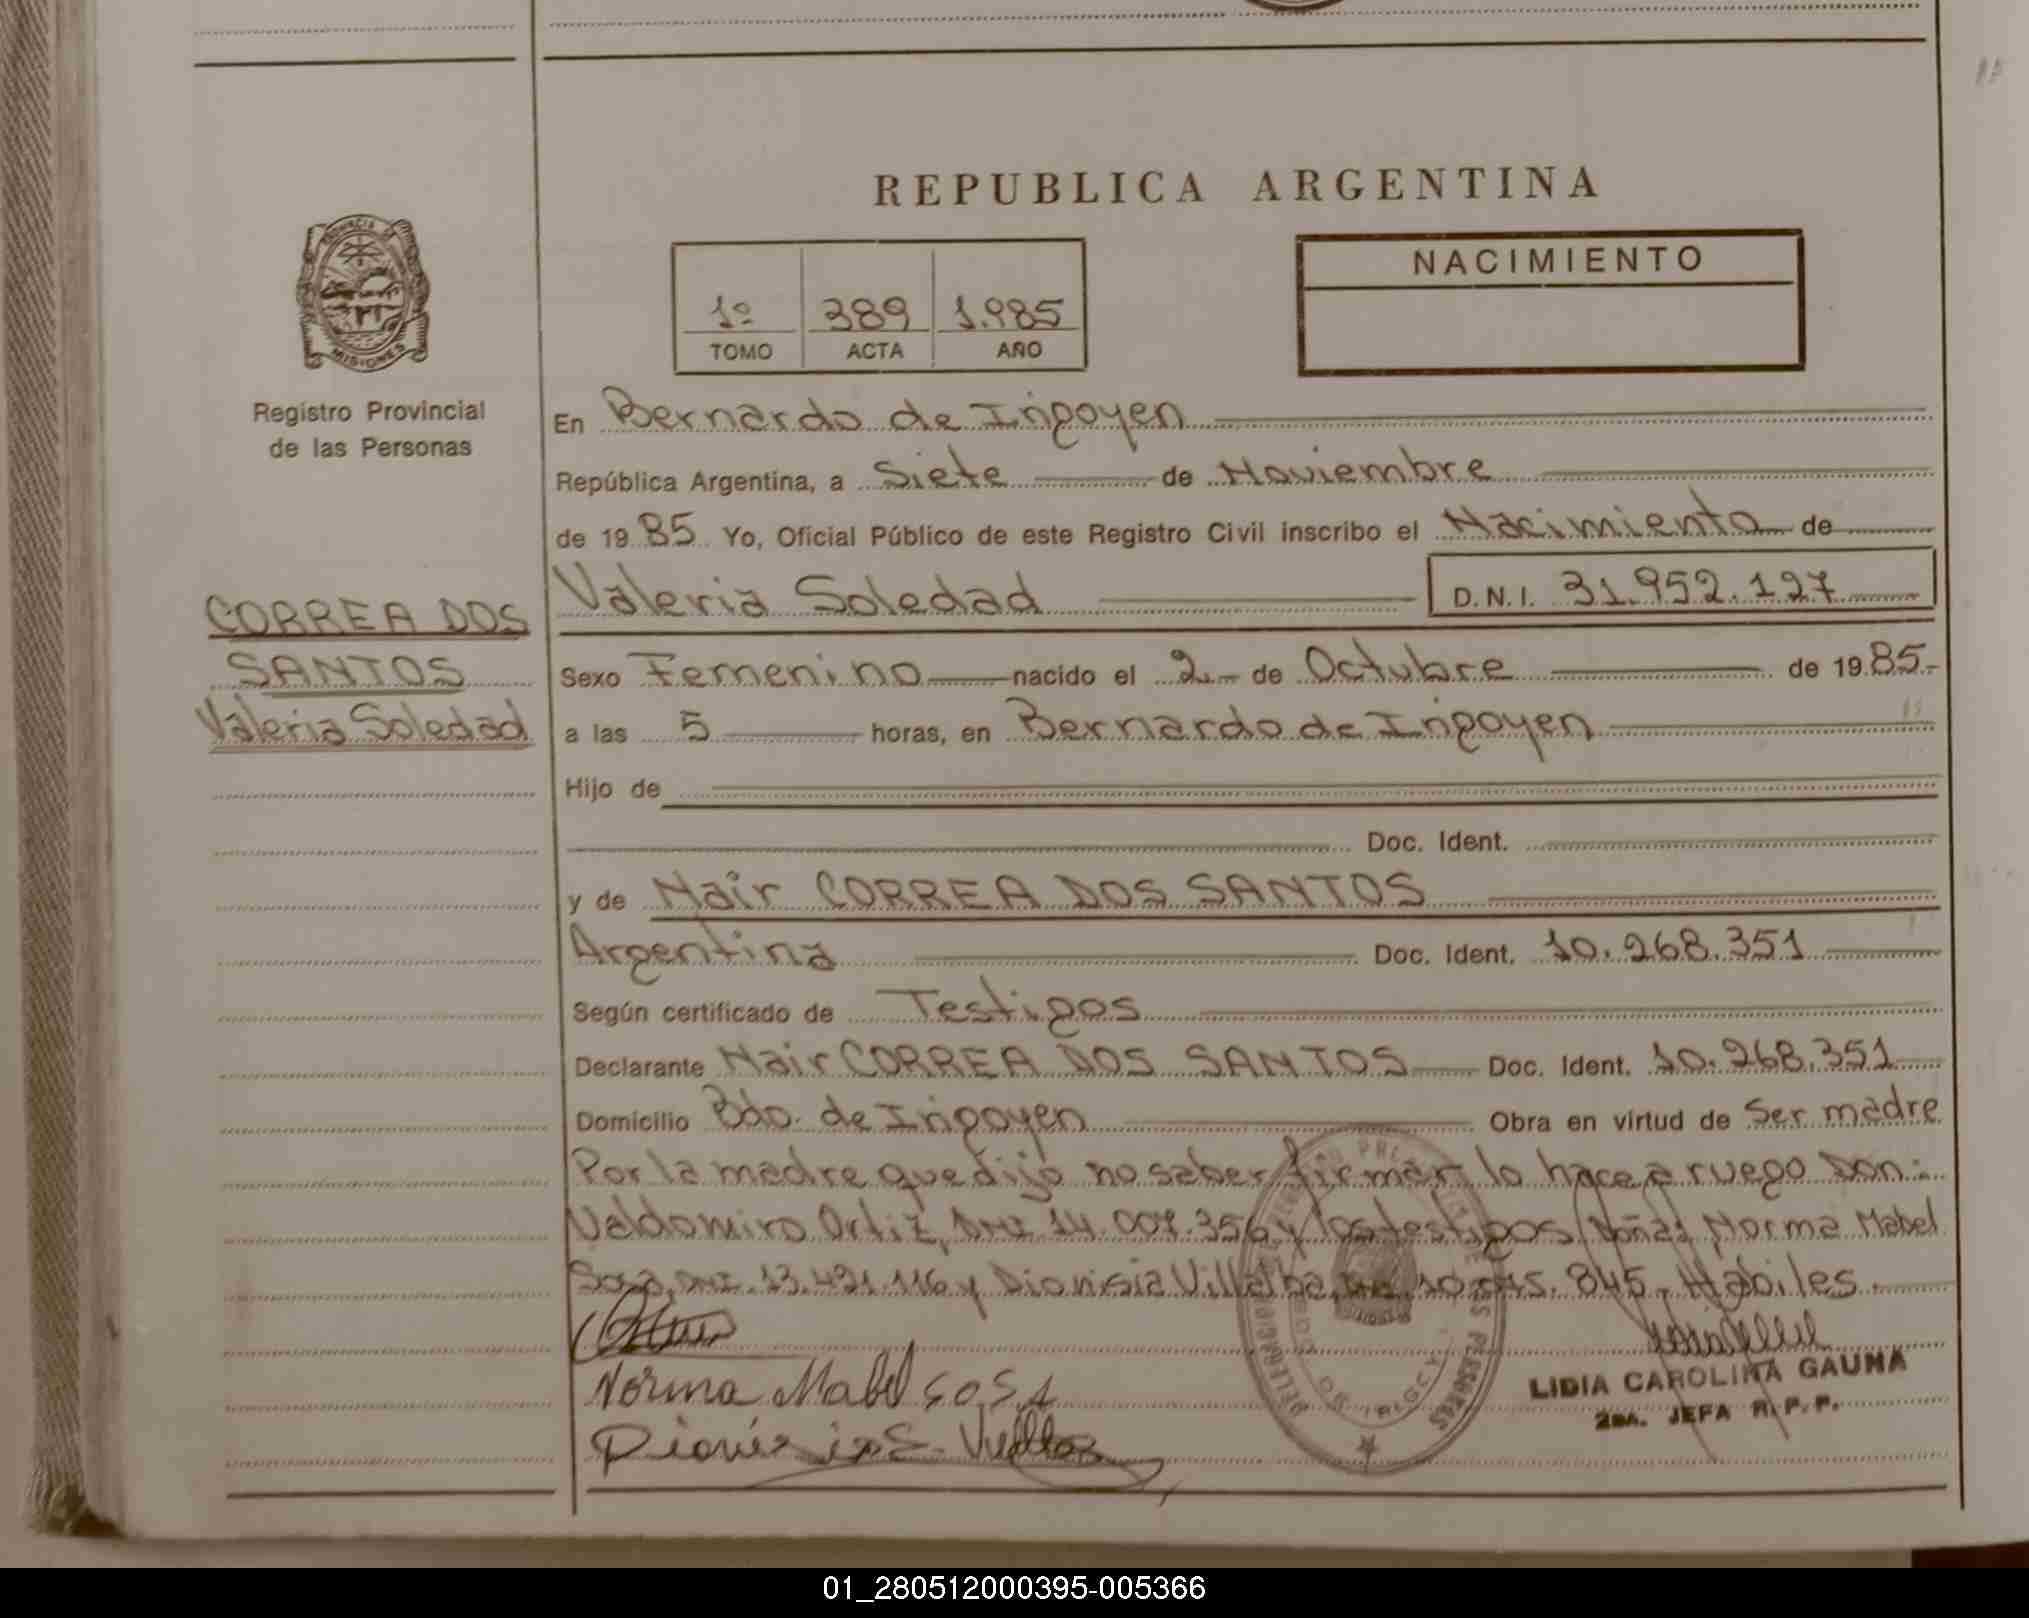 REPUBLICA ARGENTINA
PROVINCIA DE
MISIONES
Registro Provincial
de las Personas
1º 389 1.985
TOMO ACTA AÑO
NACIMIENTO
En Bernardo de Irigoyen
República Argentina, a Siete de Noviembre
de 1985 Yo, Oficial Público de este Registro Civil inscribo el Nacimiento de
CORREA DOS
SANTOS
Valeria Soledad
Valeria Soledad D.N.I. 31.952.127
Sexo Femenino nacido el 2 de Octubre de 1985.-
a las 5 horas, en Bernardo de Irigoyen
Hijo de
Doc. Ident.
y de Nair CORREA DOS SANTOS
Argentina Doc. Ident. 10.268.351
Según certificado de Testigos
Declarante Nair CORREA DOS SANTOS Doc. Ident. 10.268.351
Domicilio Bdo. de Irigoyen Obra en virtud de Ser madre
Por la madre que dijo no saber firmar lo hace a ruego Don:
Valdomiro Ortiz, DNI. 14.007.356 y los testigos Doñas Norma Mabel
Sosa, DNI. 13.421.116 y Dionisia Villalba, 845. Hábiles
Norma Mabel SOSA
LIDIA CAROLINA GAUNA
2da. JEFA R.P.P.
01_280512000395-005366